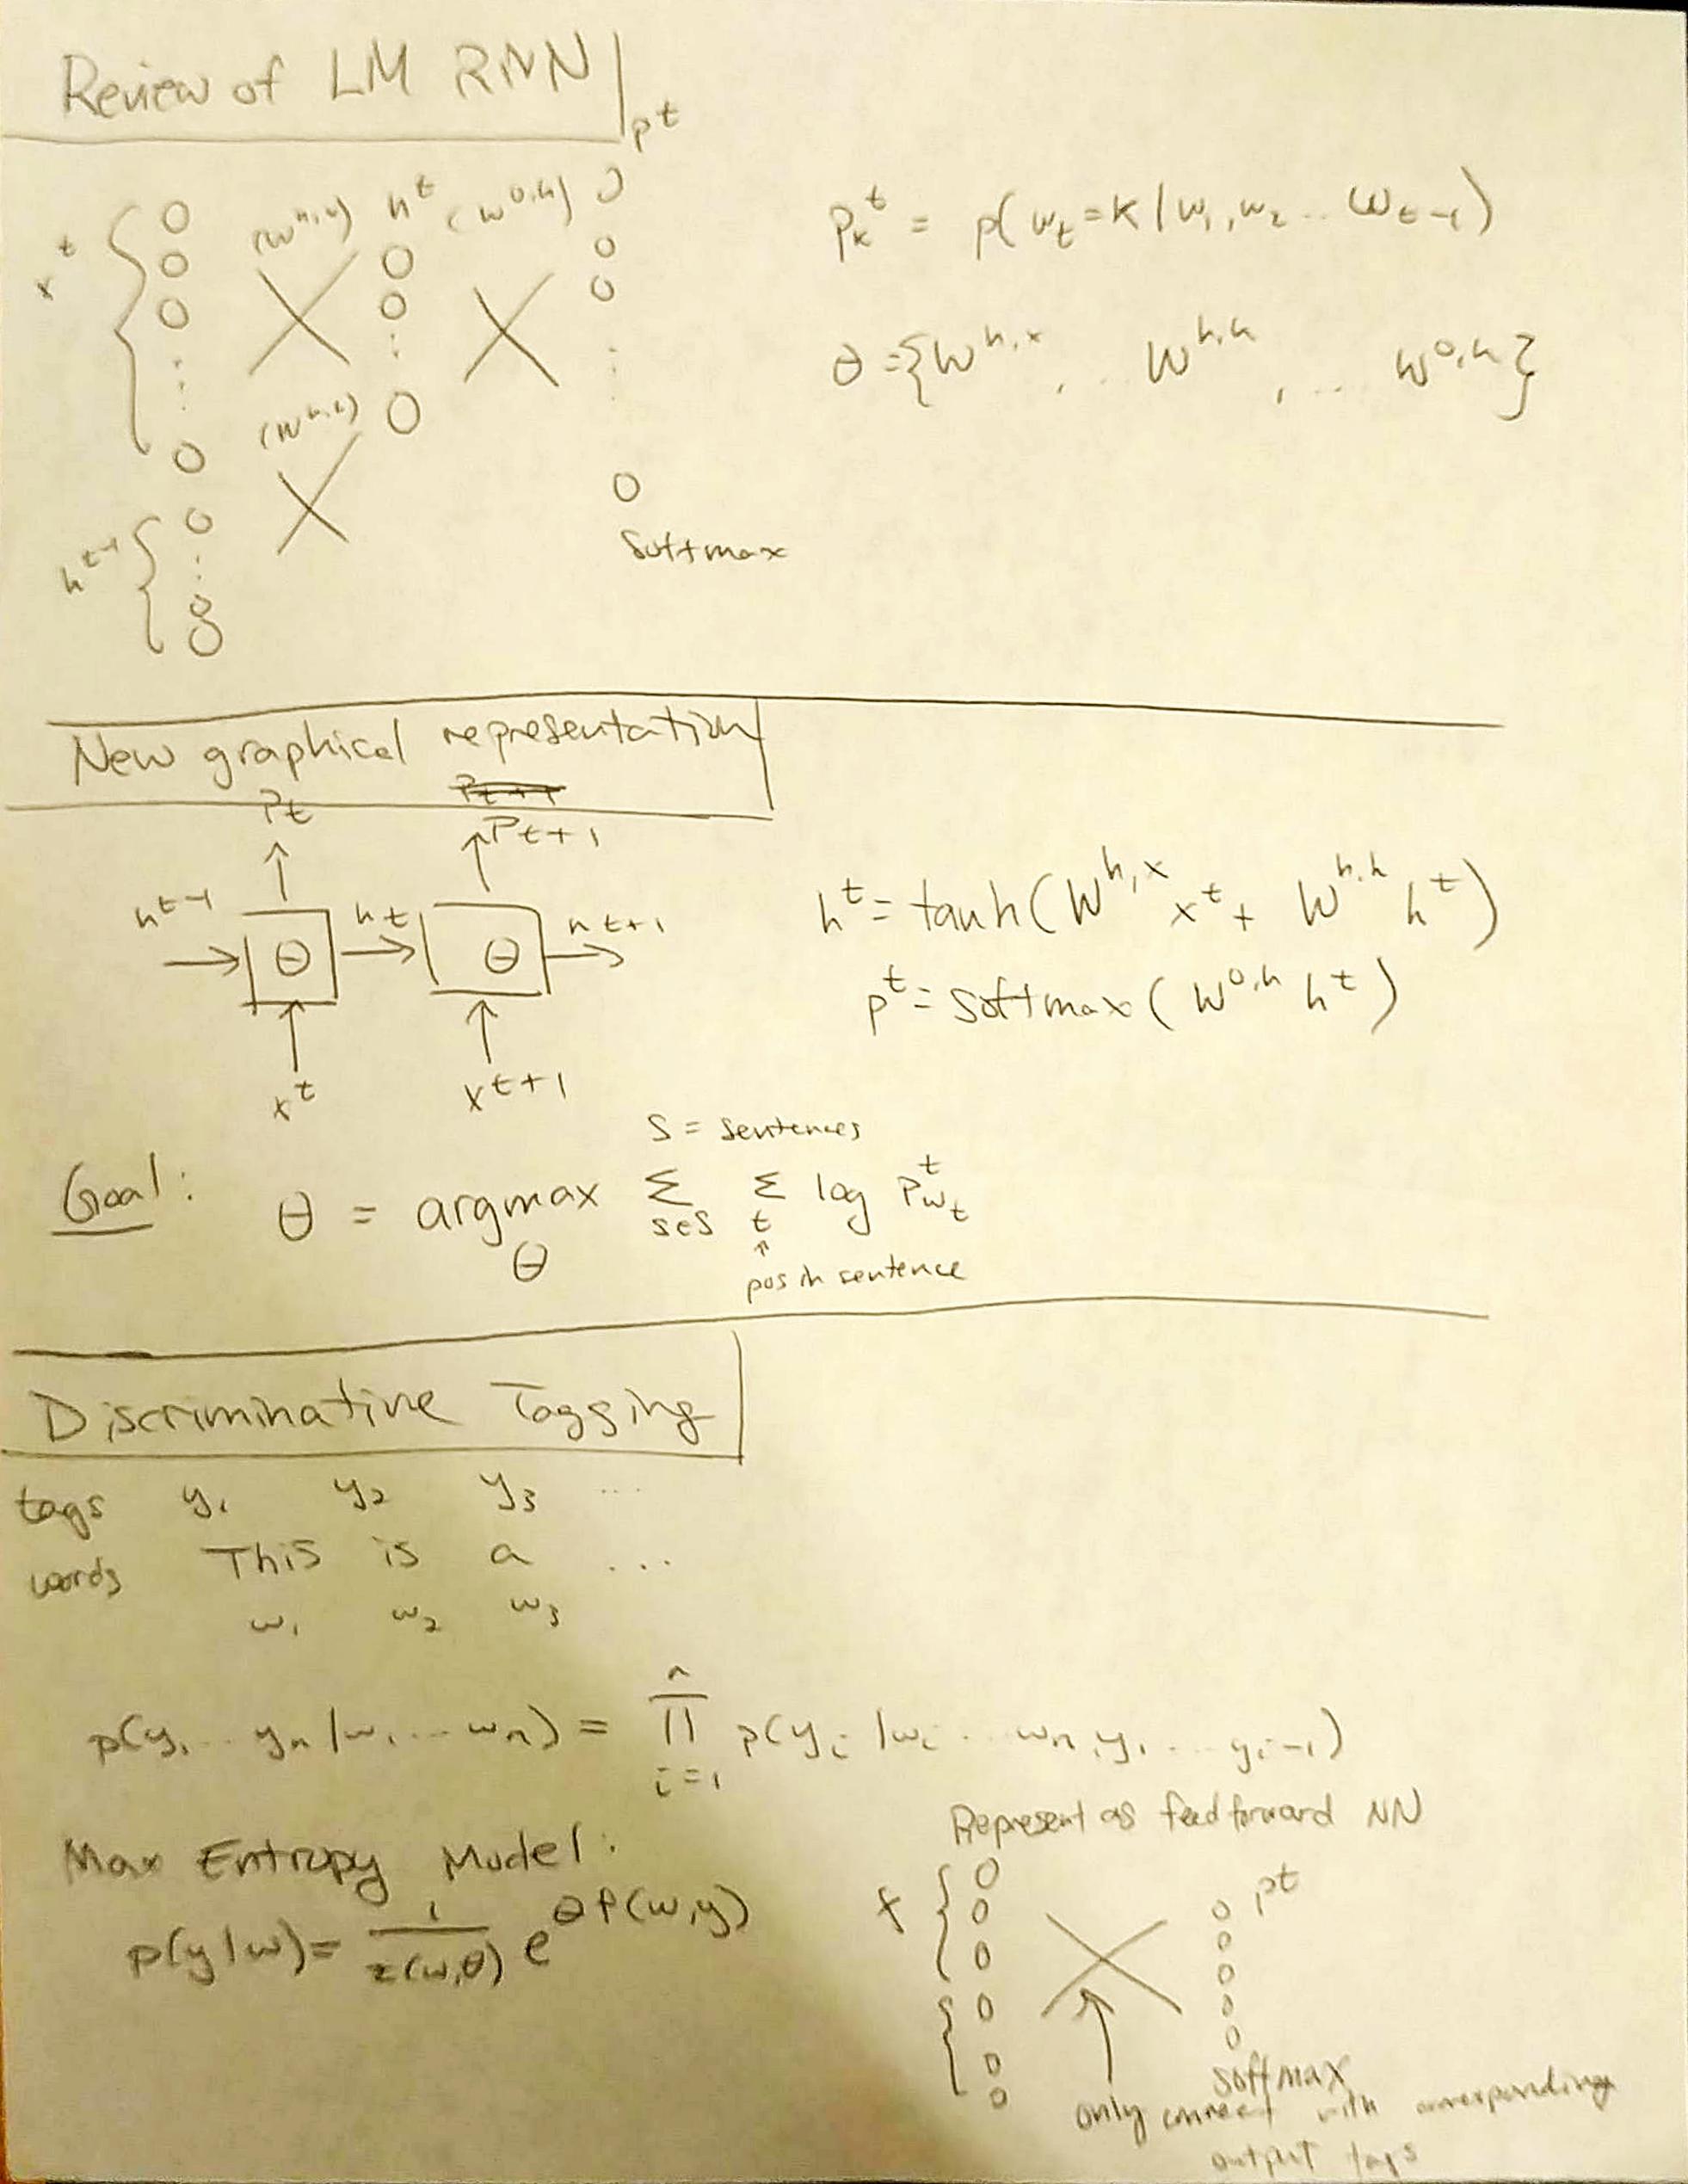 Review of LM RNN
p^t
x^t (W^{h,x}) h^t (W^{o,h})
(W^{h,h})
h^{t-1}
softmax
p_k^t = p(w_t = k | w_1, w_2 .. w_{t-1})
θ = {W^{h,x}, ... W^{h,h}, ... W^{o,h}}
New graphical representation
P_t P_{t+1}
h^{t-1} h^t h^{t+1}
θ θ
x^t x^{t+1}
h^t = tanh(W^{h,x} x^t + W^{h,h} h^t)
p^t = softmax(W^{o,h} h^t)
S = sentences
Goal: θ = argmax_θ Σ_{s∈S} Σ_t log P_{w_t}^t
↑
pos in sentence
Discriminative Tagging
tags y_1 y_2 y_3 ...
words This is a ...
w_1 w_2 w_3
p(y_1 ... y_n | w_1 ... w_n) = ∏_{i=1}^n p(y_i | w_i ... w_n, y_1 ... y_{i-1})
Max Entropy Model:
p(y|w) = 1/z(w,θ) e^{θ f(w,y)}
Represent as feedforward NN
f p^t
softmax
only connect with corresponding
output tags